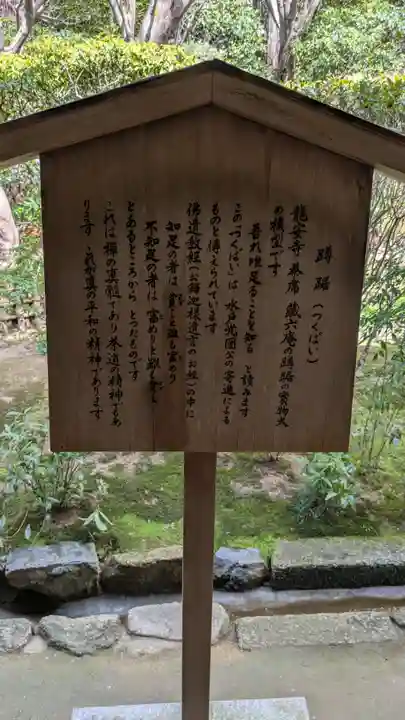 蹲踞（つくばい）
龍安寺 茶席 蔵六庵の蹲踞の実物大
の模型です
吾れ唯足ることを知る と読みます
この「つくばい」は 水戸光圀公の寄進による
ものと傳えられています
佛遺教経（お釋迦様遺言のお経）の中に
知足の者は 貧しと雖も富めり
不知足の者は 富めりと雖も貧し
とあるところから とつたものです
これは 禅の真髄であり 茶道の精神でもあ
ります これが真の平和の精神であります